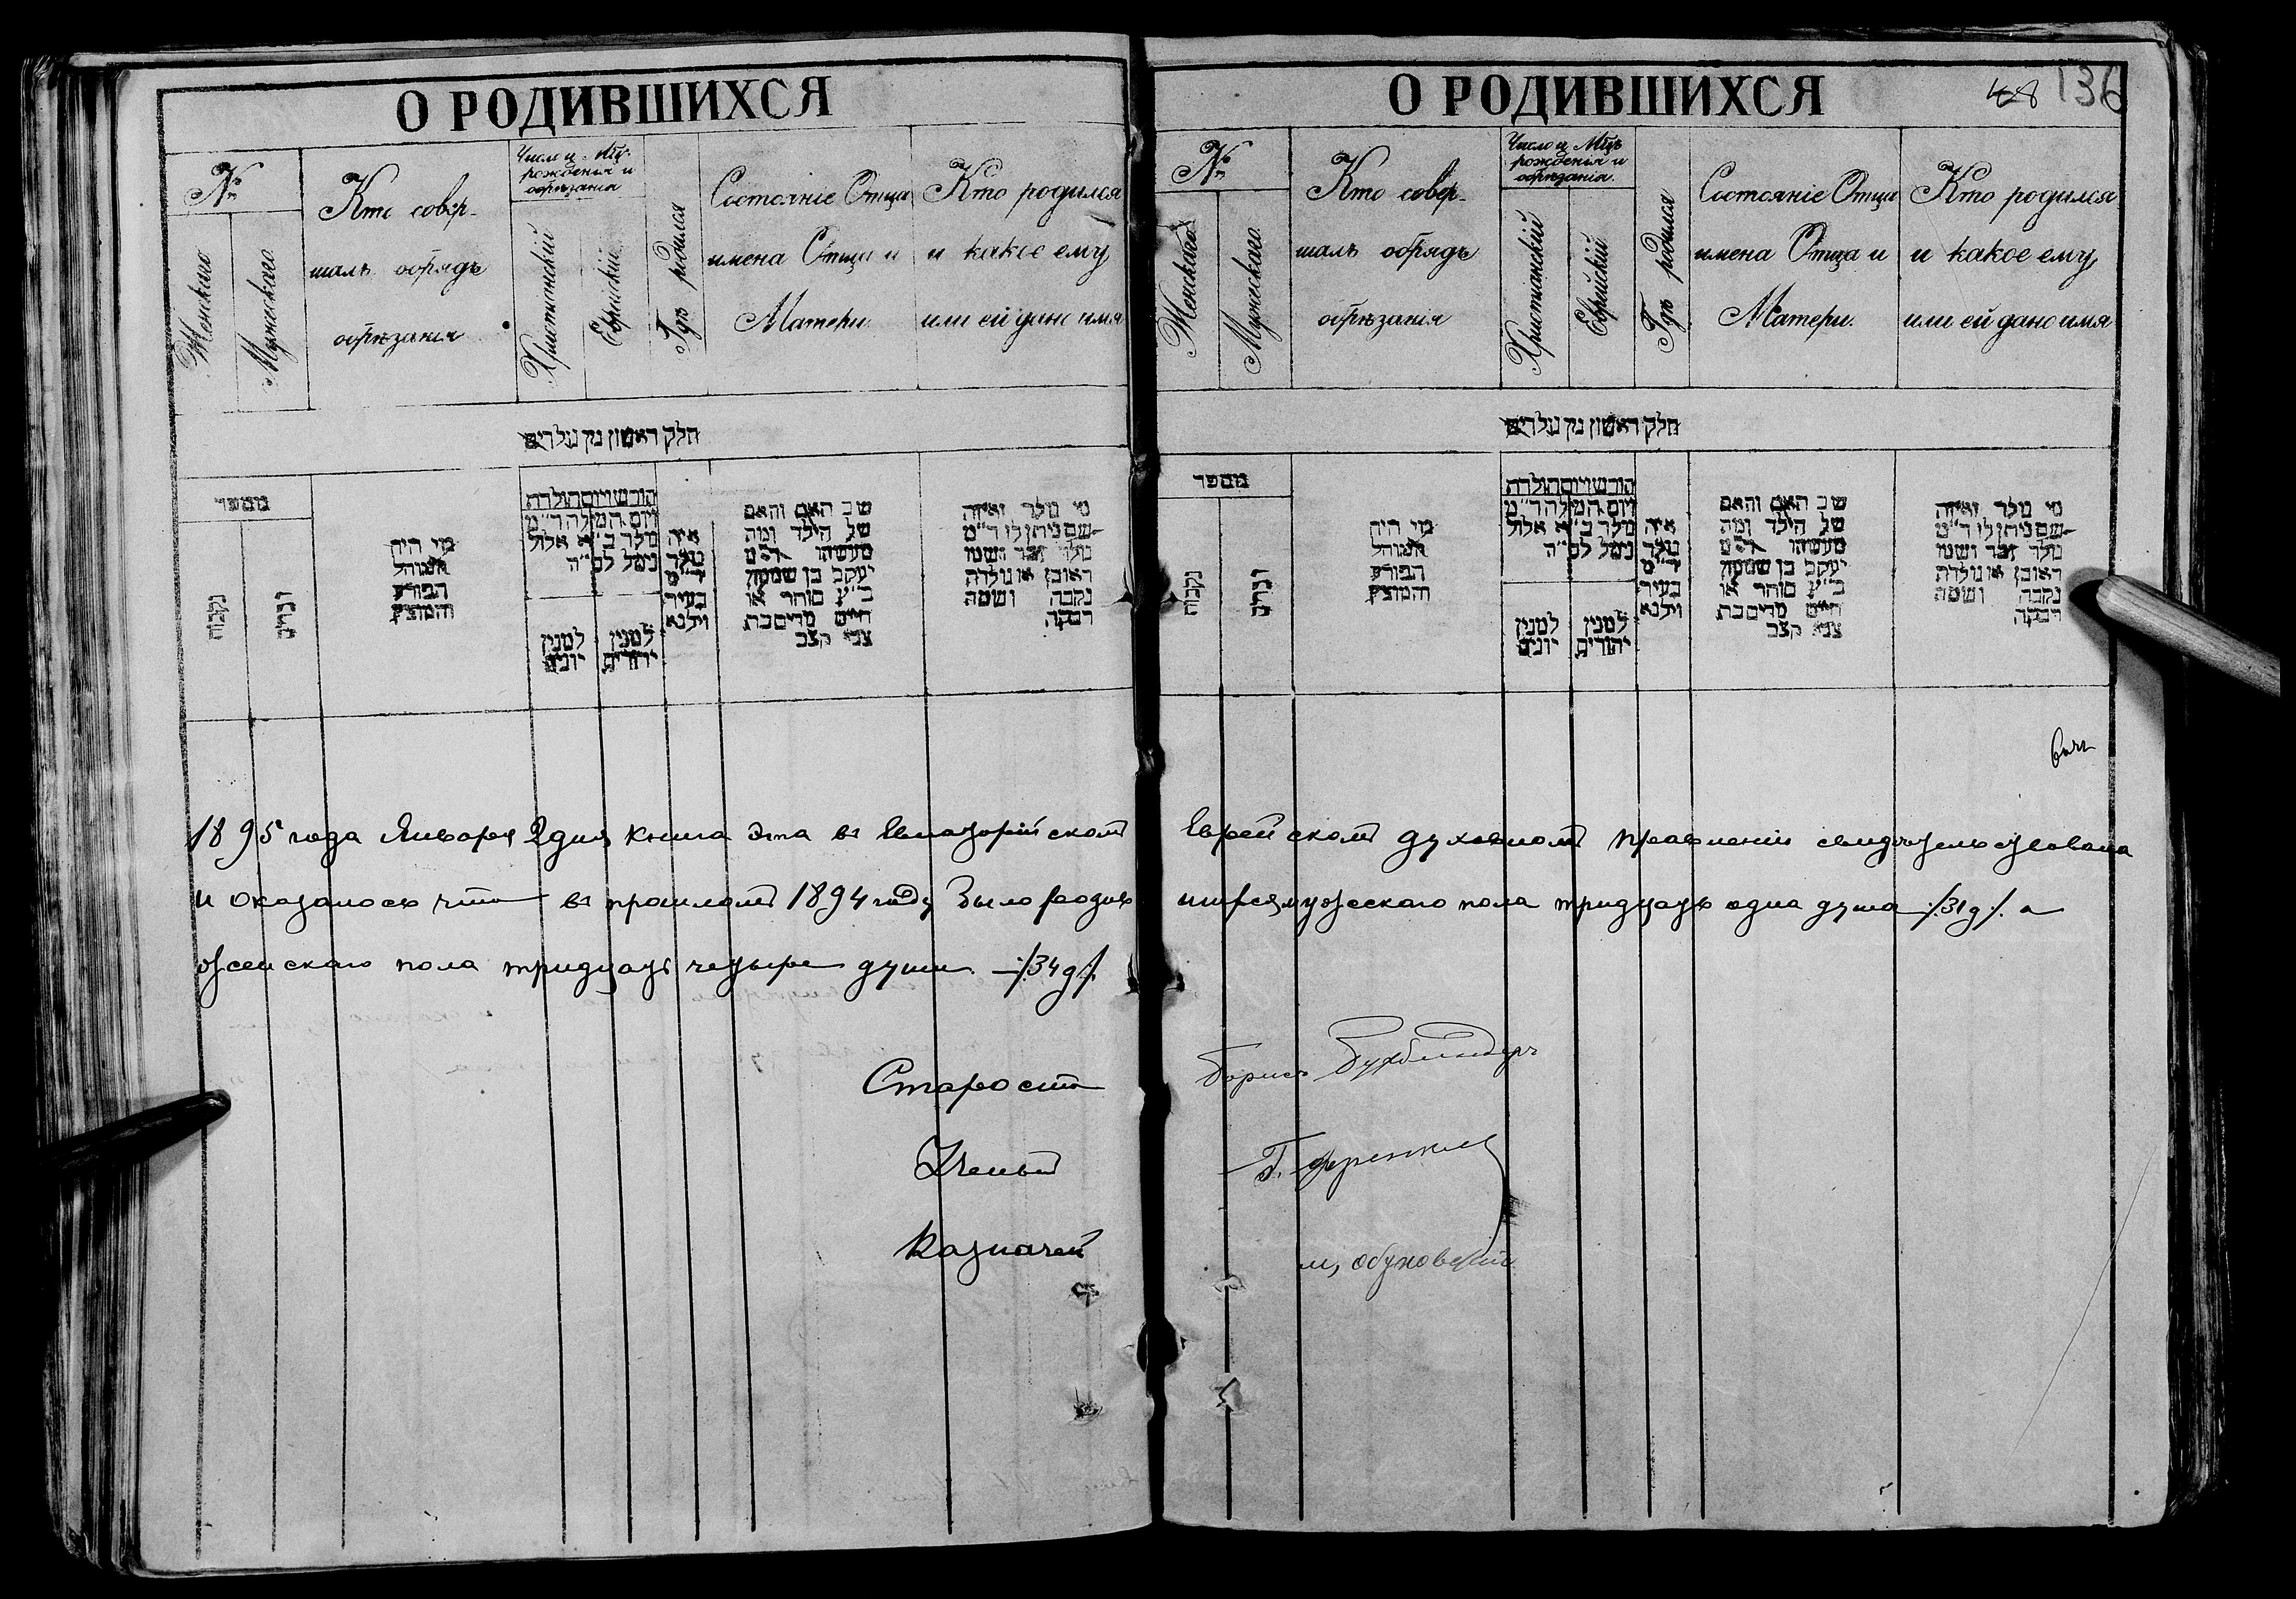 О РОДИВШИХСЯ
№
Женскаго
Мужескаго
Кто совер-
шалъ обрядъ
обрѣзанія
Число и Мцъ
рожденія и
обрѣзанія
Христіанскій
Еврейскій
Гдѣ родился
Состояніе Отца
имена Отца и
Матери.
Кто родился
и какое ему
или ей дано имя
חלק ראשון מן נולדים
מספר
נקבות
זכרים
מי היה
המוהל
הפורע
והמוצץ
חודש ויום הולדת
ויום המילה ד״מ
נולד ב״א אלול
נימל לס״ה
למנין
יונים
למנין
יהודים
איה
נולד
ד״מ
בעיר
ווילנא
שם האב והאם
של הילד ומה
מעשהו ד״מ
יעקב בן שמעון
כ״ץ סוחר או
חייט מרים בת
צבי קצב
מי נולד ואיזה
שם ניתן לו ד״מ
נולד זכר ושמו
ראובן או נולדה
נקבה ושמה
רבקה
1895 года Января 2 дня книга эта въ Евпаторійскомъ
и оказалось что въ прошломъ 1894 году было родив
женскаго пола тридцать четыре души ./.34 д/.
Староста
Ученый
Казначей
О РОДИВШИХСЯ
48 136
№
Женскаго
Мужескаго
Кто совер-
шалъ обрядъ
обрѣзанія
Число и Мцъ
рожденія и
обрѣзанія.
Христіанскій
Еврейскій
Гдѣ родился
Состояніе Отца
имена Отца и
Матери.
Кто родился
и какое ему
или ей дано имя
חלק ראשון מן נולדים
מספר
נקבות
זכרים
מי היה
המוהל
הפורע
והמוצץ
חודש ויום הולדת
ויום המילה ד״מ
נולד ב״א אלול
נימל לס״ה
למנין
יונים
למנין
יהודים
איה
נולד
ד״מ
בעיר
ווילנא
שם האב והאם
של הילד ומה
מעשהו ד״מ
יעקב בן שמעון
כ״ץ סוחר או
חייט מרים בת
צבי קצב
מי נולד ואיזה
שם ניתן לו ד״מ
נולד זכר ושמו
ראובן או נולדה
נקבה ושמה
רבקה
Еврейскомъ духовномъ правленіи свидѣтельствована
шихся мужескаго пола тридцать одна душа ./.31 д/. а
Борисъ Бухбиндеръ
Г. Френкель
М, Обуховскій